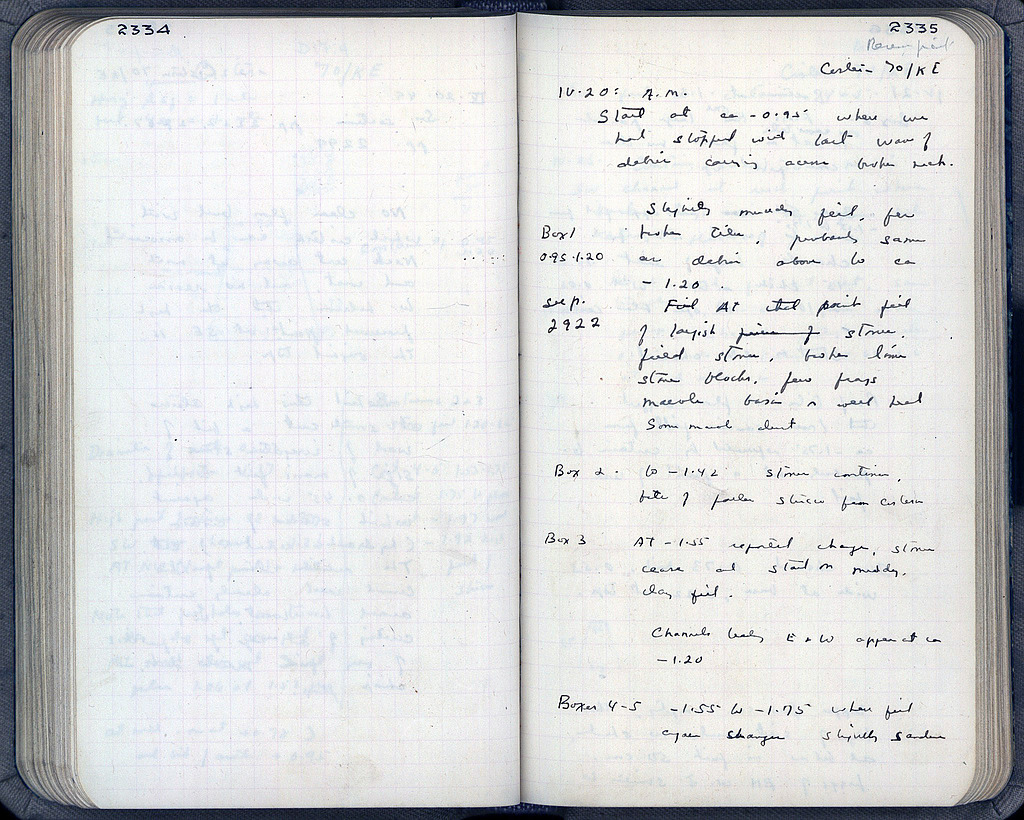 2334
2335
Cistern 70/KE
IV.20: A.M.
Start at ca -0.95 where we
had stopped with last wave of
debris coming across broken neck.
Slightly muddy fill, few
Box 1 broken tiles, probably same
0.95-1.20 as debris above to ca
- 1.20.
sup. Fill At that point fill
2922 of largish pieces of stones,
field stones, broken lime
stone blocks, few frags
marble basin in well head
Some marble dust
Box 2. to -1.42 stones continue,
bits of from cistern
Box 3 AT -1.55 reported change, stones
cease and start on muddy,
clay fill.
Channels leading E & W appear at ca
-1.20
Boxes 4-5 -1.55 to -1.75 where fill
again changes slightly sandier